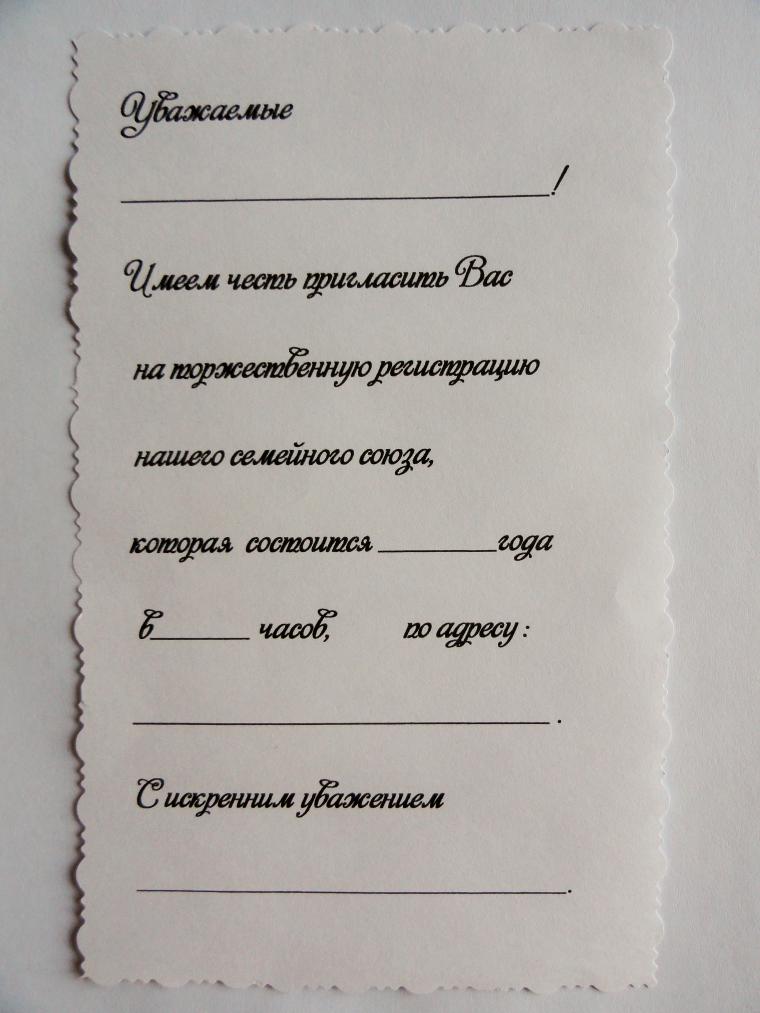 Уважаемые
____________________!
Имеем честь пригласить Вас
на торжественную регистрацию
нашего семейного союза,
которая состоится ________года
в_______ часов, по адресу :
____________________ .
С искренним уважением
____________________.